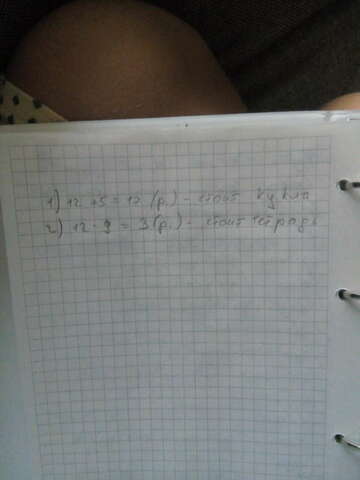 1) 12 + 5 = 17 (р.) - стоит кукла
2) 12 - 9 = 3 (р.) - стоит тетрадь